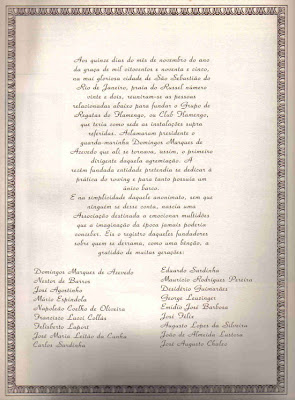 Aos quinze dias do mês de novembro do ano
da graça de mil oitocentos e noventa e cinco,
na mui gloriosa cidade de São Sebastião do
Rio de Janeiro, praia do Russel número
vinte e dois, reuniram-se as pessoas
relacionadas abaixo para fundar o Grupo de
Regatas do Flamengo, ou Club Flamengo,
que teria como sede as instalações supra
referidas. Aclamaram presidente o
guarda-marinha Domingos Marques de
Azevedo que ali se tornava, assim, o primeiro
dirigente daquela agremiação. A
recém fundada entidade pretendia se dedicar à
prática do rowing e para tanto possuía um
único barco.
E na simplicidade daquele anonimato, sem que
ninguém se desse conta, nascia uma
Associação destinada a emocionar multidões
que a imaginação da época jamais poderia
conceber. Eis o registro daqueles fundadores
sobre quem se derrama, como uma bênção, a
gratidão de muitas gerações:
Domingos Marques de Azevedo
Nestor de Barros
José Agostinho
Mário Espíndola
Napoleão Coelho de Oliveira
Francisco Lucci Collás
Felisberto Laport
José Maria Leitão da Cunha
Carlos Sardinha
Eduardo Sardinha
Maurício Rodrigues Pereira
Desidério Guimarães
George Leuzinger
Emídio José Barbosa
José Félix
Augusto Lopes da Silveira
João de Almeida Lustosa
José Augusto Chalreo